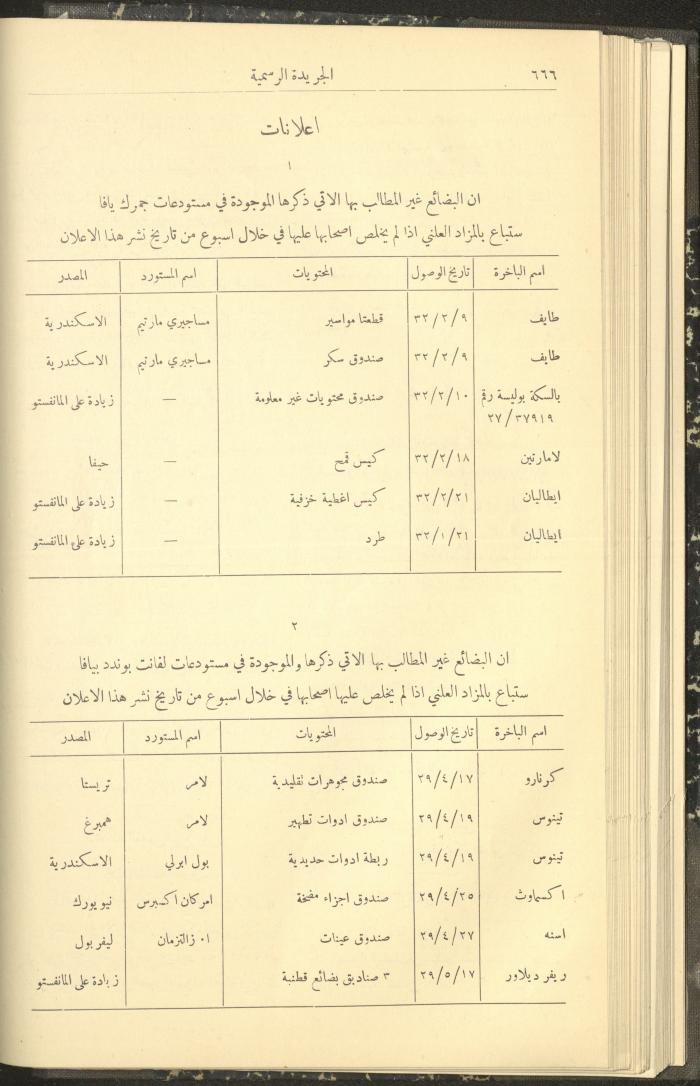 ٦٦٦ الجريدة الرسمية
اعلانات
١
ان البضائع غير المطالب بها الاتي ذكرها الموجودة في مستودعات جمرك يافا
ستباع بالمزاد العلني اذا لم يخلص اصحابها عليها في خلال اسبوع من تاريخ نشر هذا الاعلان
اسم الباخرة تاريخ الوصول المحتويات اسم المستورد المصدر
طايف ٣٢/٢/٩ قطعتا مواسير مساجيري مارتيم الاسكندرية
طايف ٣٢/٢/٩ صندوق سكر مساجيري مارتيم الاسكندرية
بالسكة بوليسة رقم ٣٢/٢/١٠ صندوق محتويات غير معلومة — زيادة على المانفستو
٢٧/٣٧٩١٩
لامارتين ٣٢/٢/١٨ كيس قمح — حيفا
ايطاليان ٣٢/٢/٢١ كيس اغطية خزفية — زيادة على المانفستو
ايطاليان ٣٢/١/٢١ طرد — زيادة على المانفستو
٢
ان البضائع غير المطالب بها الاتي ذكرها والموجودة في مستودعات لفانت بوندد بيافا
ستباع بالمزاد العلني اذا لم يخلص عليها اصحابها في خلال اسبوع من تاريخ نشر هذا الاعلان
اسم الباخرة تاريخ الوصول المحتويات اسم المستورد المصدر
كرنارو ٢٩/٤/١٧ صندوق مجوهرات تقليدية لامر تريستا
تينوس ٢٩/٤/١٩ صندوق ادوات تطهير لامر همبرغ
تينوس ٢٩/٤/١٩ ربطة ادوات حديدية بول ابرلي الاسكندرية
اكسماوث ٢٩/٤/٢٥ صندوق اجزاء مضخة امركان اكسبرس نيويورك
اسنه ٢٩/٤/٢٧ صندوق عينات ا٠ زالتزمان ليفربول
ريفر ديلاور ٢٩/٥/١٧ ٣ صناديق بضائع قطنية زيادة على المانفستو